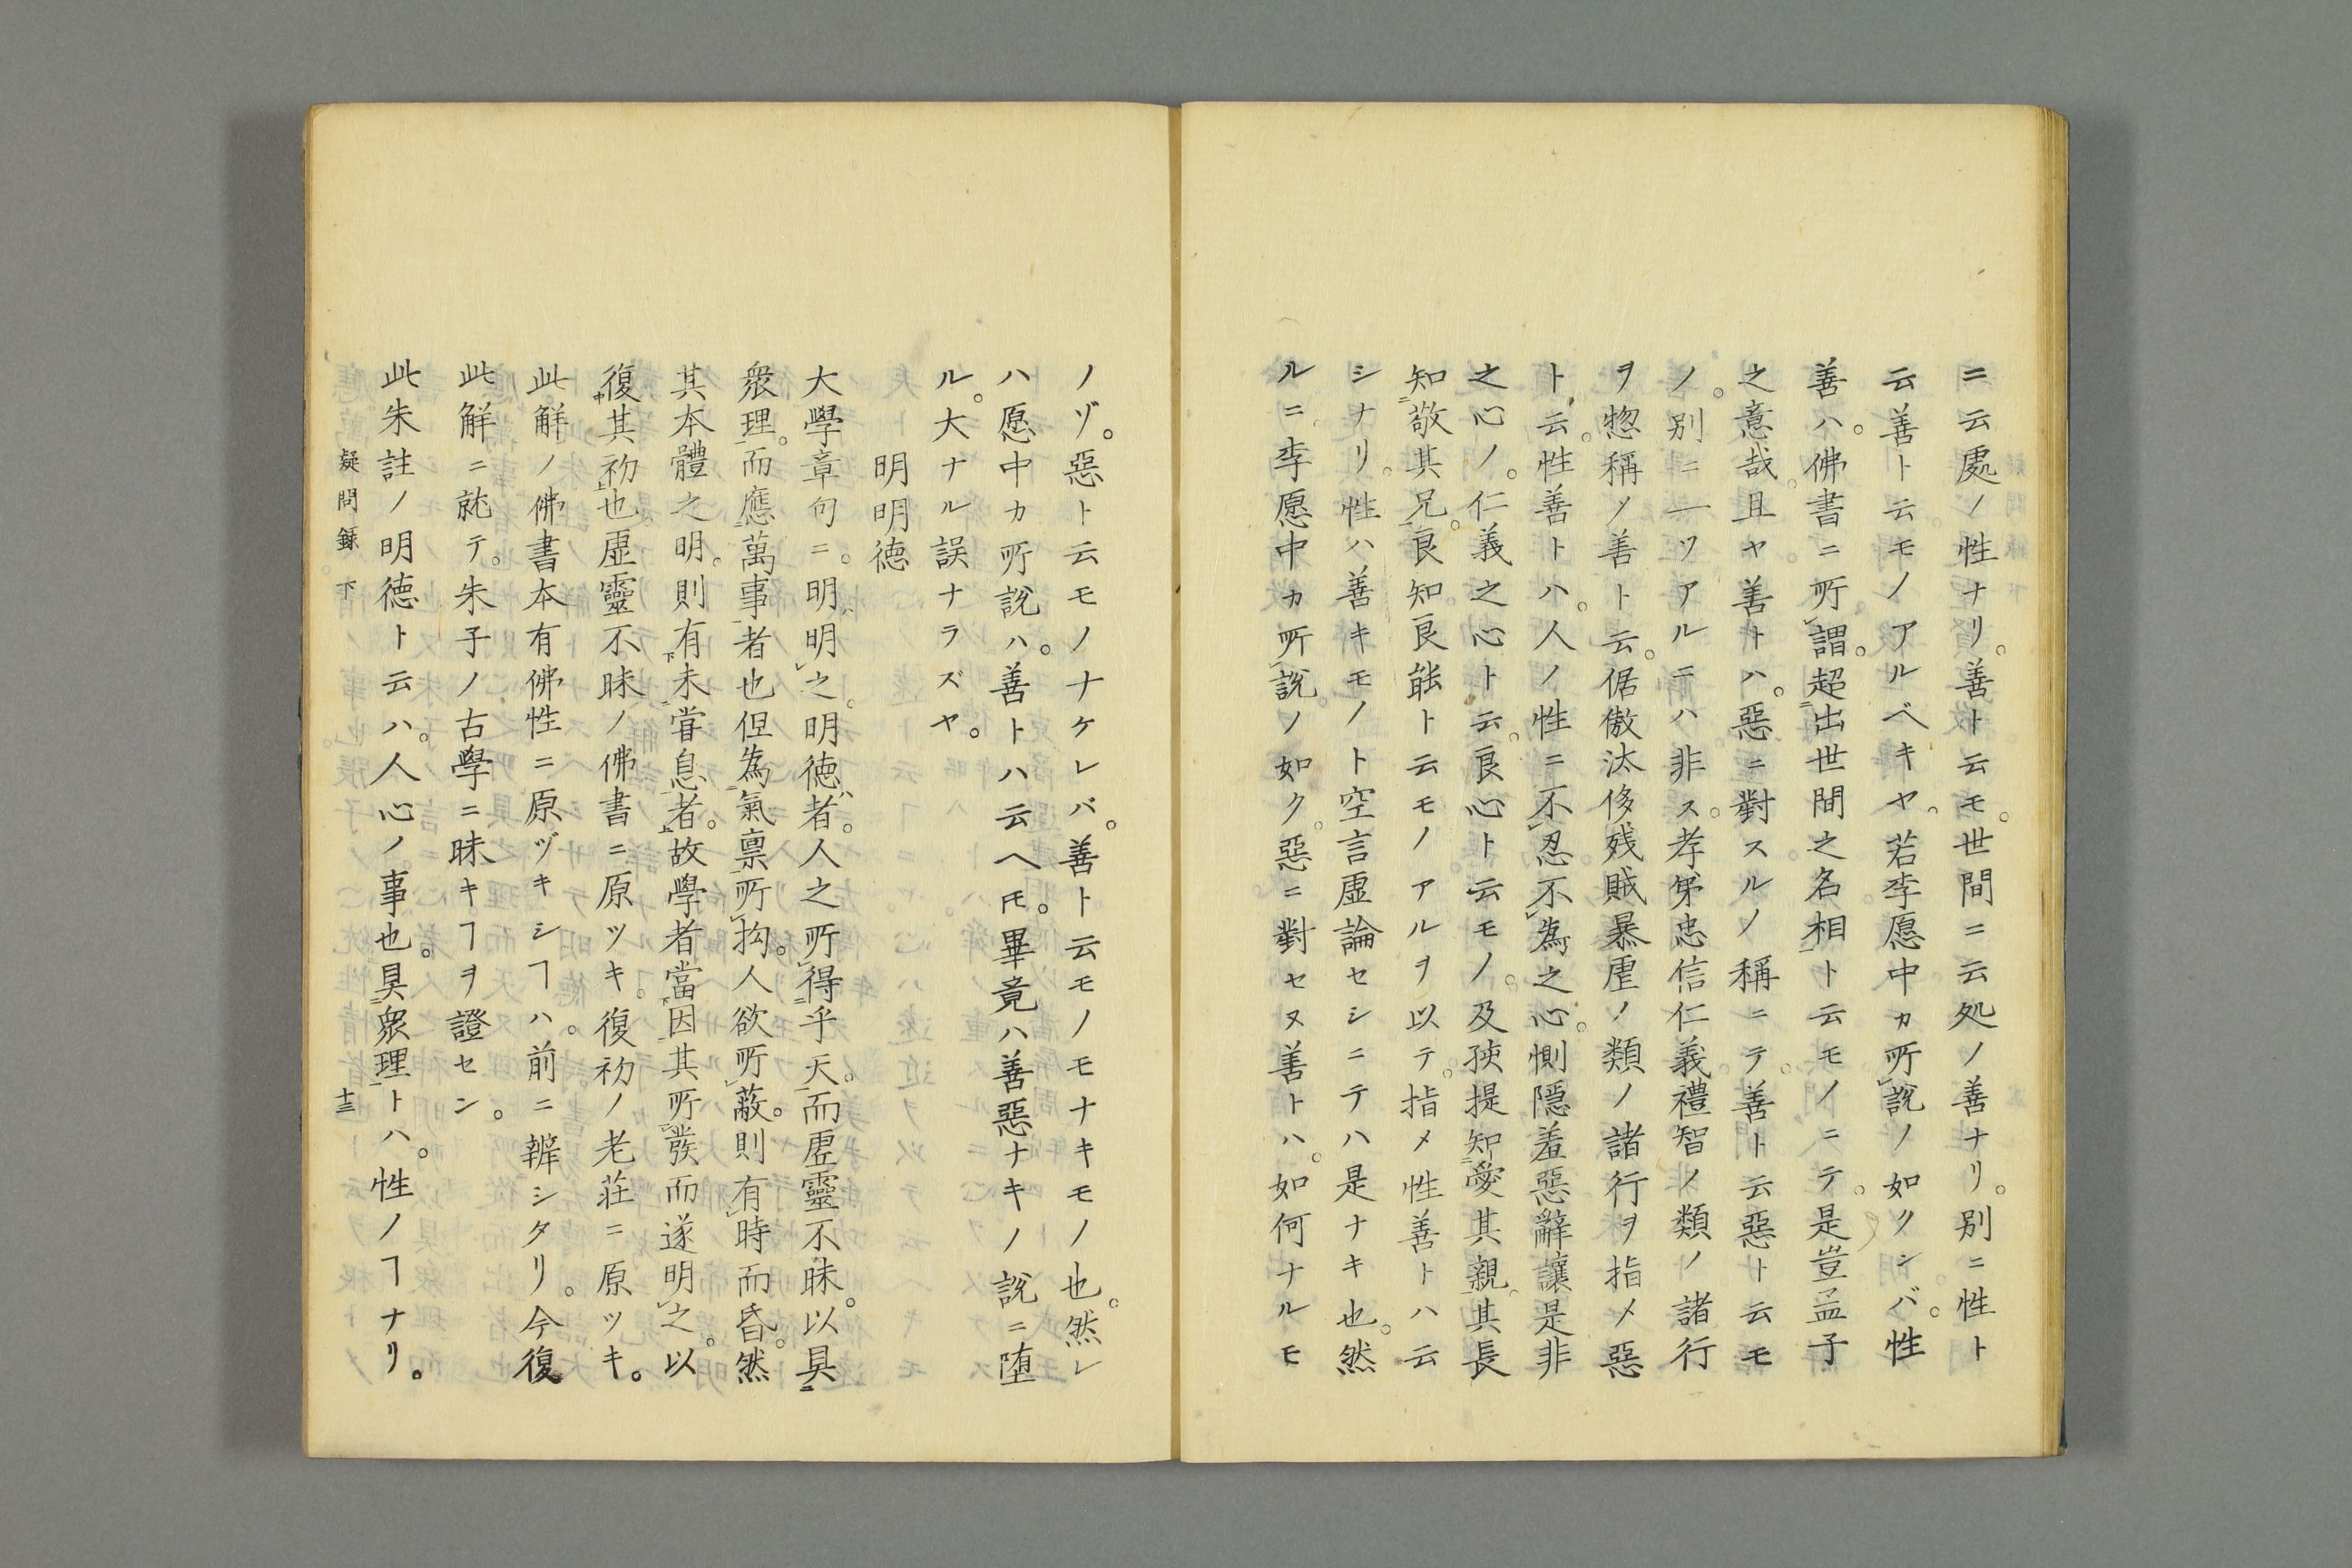 ニ云處ノ性ナリ。善ト云モ。世間ニ云処ノ善ナリ。別ニ性ト
云善ト云モノアルベキヤ。若李愿中カ所説ノ如クシバ。性
善ハ。佛書ニ所謂。超出世間之名相ト云モノニテ。是豈孟子
之意哉。且ヤ善トハ。惡ニ對スルノ稱ニテ。善ト云惡ト云モ
ノ。別ニ一ツアルニハ非ス。孝弟忠信仁義禮智ノ類ノ諸行
ヲ惣稱メ善ト云。倨傲汰侈残賊暴虐ノ類ノ諸行ヲ指メ惡
ト云。性善トハ。人ノ性ニ不忍不為之心。惻隠羞惡辭讓是非
之心ノ。仁義之心ト云。良心ト云モノ。及孩提知愛其親。其長
知敬其兄。良知良能ト云モノアルヲ以テ。指メ性善トハ云
シナリ。性ハ善キモノト空言虚論セシニテハ是ナキ也。然
ルニ。李愿中カ所説ノ如ク。惡ニ對セヌ善トハ。如何ナルモ
ノゾ。惡ト云モノナケレバ。善ト云モノモナキモノ也。然レ
ハ愿中カ所説ハ。善トハ云ヘ𪜈。畢竟ハ善惡ナキノ説ニ堕
ル。大ナル誤ナラズヤ。
明明徳
大學章句ニ。明明之。明徳者。人之所得乎天。而虚靈不昧。以具
衆理。而應萬事者也但為氣禀所拘。人欲所蔽。則有時而昏。然
其本體之明。則有未嘗息者。故學者當因其所發而遂明之。以
復其初也虚靈不昧ノ佛書ニ原ツキ。復初ノ老荘ニ原ツキ。
此解ノ佛書本有佛性ニ原ヅキシヿハ。前ニ辨シタリ。今復
此解ニ就テ。朱子ノ古學ニ昧キヿヲ證セン。
此朱註ノ明徳ト云ハ。人心ノ事也。具衆理トハ。性ノヿナリ。
疑問録 下 十三